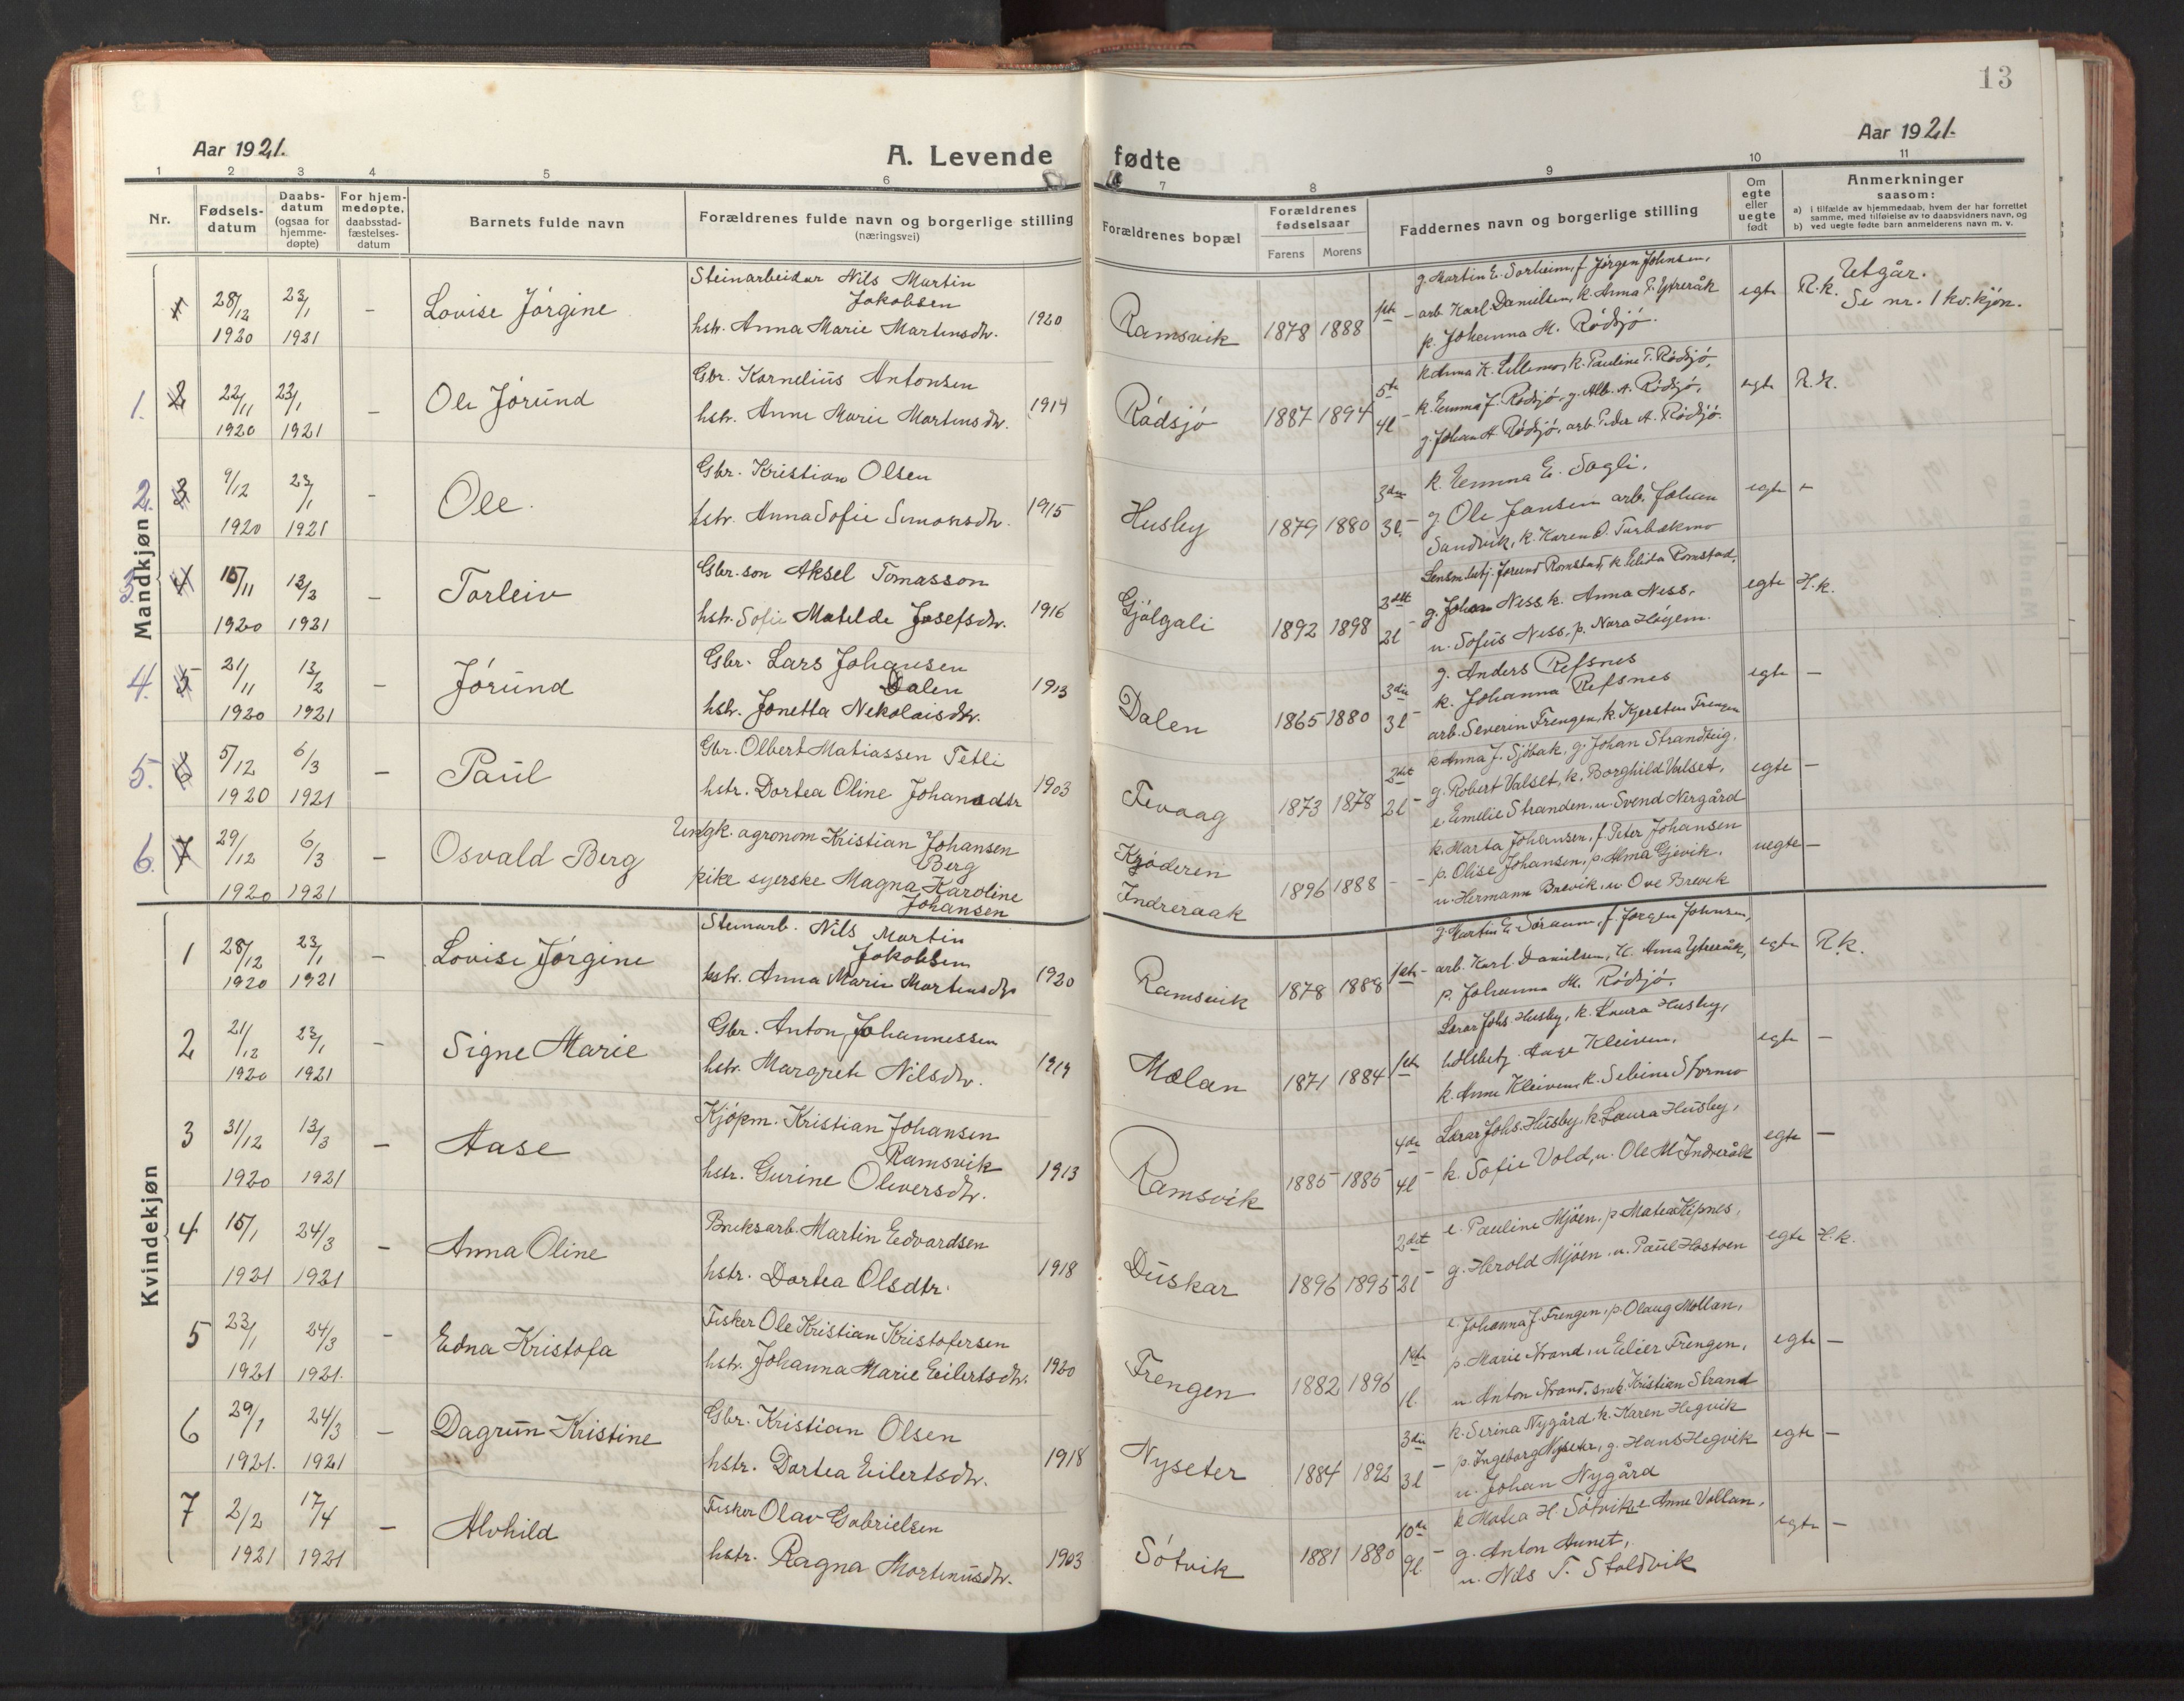 13
Aar 1921.
A. Levende
fødte
Aar 1921.
1 2 3 4 5 6 7 8 9 10 11
Nr.
Fødsels-
datum
Daabs-
datum
(ogsaa for
hjemme-
døpte)
For hjem-
medøpte,
daabsstad-
fæstelses-
datum
Barnets fulde navn
Forældrenes fulde navn og borgerlige stilling
(næringsvei)
Forældrenes bopæl
Forældrenes
fødselsaar
Farens Morens
Faddernes navn og borgerlige stilling
Om
egte
eller
uegte
født
Anmerkninger
saasom:
a) i tilfælde av hjemmedaab, hvem der har forrettet
samme, med tilføielse av to daabsvidners navn, og
b) ved uegte fødte barn anmelderens navn m. v.
Mandkjøn
1 28/12 1920 23/1 1921 – Lovise Jørgine
Steinarbeider Nils Martin
Jakobsen
hstr. Anna Marie Martinsdtr. 1920
Ramsvik 1878 1888 1ste –
g. Martin E. Sorheim, f. Jørgen Johnsen,
arb. Karl Danielsen, k. Anna P. Ytreråk
p. Johanna M. Rödsjö.
egte R.k. Utgår.
Se nr. 1 kv.kjøn.
1. 2 22/11 1920 23/1 1921 – Ole Jörund
Gbr. Kornelius Antonsen
hstr. Anne Marie Martinsdtr. 1914
Rödsjö 1887 1894 5te 4l –
k. Anna K. Lillemo, k. Pauline T. Rödsjö,
k. Emma J. Rödsjö, g. Alb. A. Rödsjö,
g. Johan A. Rödsjö, arb. Peder A. Rödsjö.
egte R.k.
2. 3 9/12 1920 23/1 1921 – Ole.
Gbr. Kristian Olsen
hstr. Anna Sofie Simonsdtr. 1915
Husby 1879 1880 3die 3l. –
k. Emma E. Sagli,
g. Ole Jansen arb. Johan
Sandvik, k. Karen O. Turbekmo
egte –
3. 4 15/11 1920 13/2 1921 – Torleiv
Gbr.son Aksel Tomasson
hstr. Sofie Matelde Josefsdtr. 1916
Gjölgali 1892 1898 2det 2l –
Lensm.betj. Jorund Romstad, k. Elida Romstad,
g. Johan Ness, k. Anna Ness,
u. Sofus Ness, p. Nora Höyem.
egte H.k.
4. 5 21/11 1920 13/2 1921 – Jörund
Gbr. Lars Johansen
Dalen
hstr. Jonetta Nekolaisdtr. 1913
Dalen 1865 1880 3die 3l –
g. Anders Refsnes
k. Johanna Refsnes
arb. Severin Frengen, k. Kjersten Frengen
egte –
5. 6 5/12 1920 6/3 1921 – Paul
Gbr. Olbert Matiassen Tetli
hstr. Dortea Oline Johansdtr 1903
Tevaag 1873 1878 2det 2l –
k. Anna J. Sjöbak, g. Johan Strandteig,
g. Robert Valset, k. Borghild Valset,
e. Emelie Stranden, u. Svend Nergård
egte –
6. 7 29/12 1920 6/3 1921 – Osvald Berg
Ungk. agronom Kristian Johansen
Berg
pike syerske Magna Karoline
Johansen
Kröderen
Indreraak 1896 1888 – –
k. Marta Johansen, f. Peter Johansen
p. Olise Johansen, p. Alma Gjevik,
u. Hermann Brevik, u. Ove Brevik
uegte –
Kvindekjøn
1 28/12 1920 23/1 1921 – Lovise Jörgine
Steinarb. Nils Martin
Jakobsen
hstr. Anna Marie Martinsdtr 1920
Ramsvik 1878 1888 1ste –
arb. Karl Danielsen, K. Anna Ytreråk,
p. Johanna M. Rödsjö.
egte R.k.
2 21/12 1920 23/1 1921 – Signe Marie
Gbr. Anton Johannessen
hstr. Margrete Nilsdtr. 1919
Mælan 1871 1884 1ste
Lærar Johs Husby, k. Laura Husby,
hdlsbetj. Aage Kleiven,
k. Anne Kleiven, k. Sebine Stormo
egte –
3 31/12 1920 13/3 1921 – Aase
Kjöpm. Kristian Johansen
Ramsvik
hstr. Gurine Oliversdtr. 1913
Ramsvik 1885 1885 4de 4l –
Lærar Johs. Husby, k. Laura Husby,
k. Sofie Vold, u. Ole M Indreråk
egte –
4 15/1 1921 24/3 1921 – Anna Oline
Bruksarb. Martin Edvardsen
hstr. Dortea Olsdtr. 1918
Duskar 1896 1895 2det 2l –
e. Pauline Mjöen, p. Matea Kipnes,
g. Herold Mjöen, u. Paul Hostoen
egte H.k.
5 23/1 1921 24/3 1921. – Edna Kristofa
Fisker Ole Kristian Kristofersen
hstr. Johanna Marie Eilertsdtr. 1920
Frengen 1882 1896 1ste 1l.
e. Johanna J. Frengen, p. Olaug Mollan,
p. Marie Strand, u. Eilier Frengen,
u. Anton Strand, snek. Kristian Strand
egte –
6 29/1 1921. 24/3 1921 – Dagrun Kristine
Gbr. Kristian Olsen
hstr. Dortea Eilertsdtr. 1918
Nyseter 1884 1892 3die 3l –
k. Serina Nygård, k. Karen Hegvik
p. Ingeborg Nyseter, g. Hans Hegvik
u. Johan Nygård
egte –
7 2/2 1921 17/4 1921 – Alvhild
Fisker Olav Gabrielsen
hstr. Ragna Martinusdtr. 1903
Sötvik 1881 1880 10de 9l –
k Matea H. Sötvik, e Anne Vollan,
g. Anton Aunet,
u. Nils T. Stoldvik
egte –